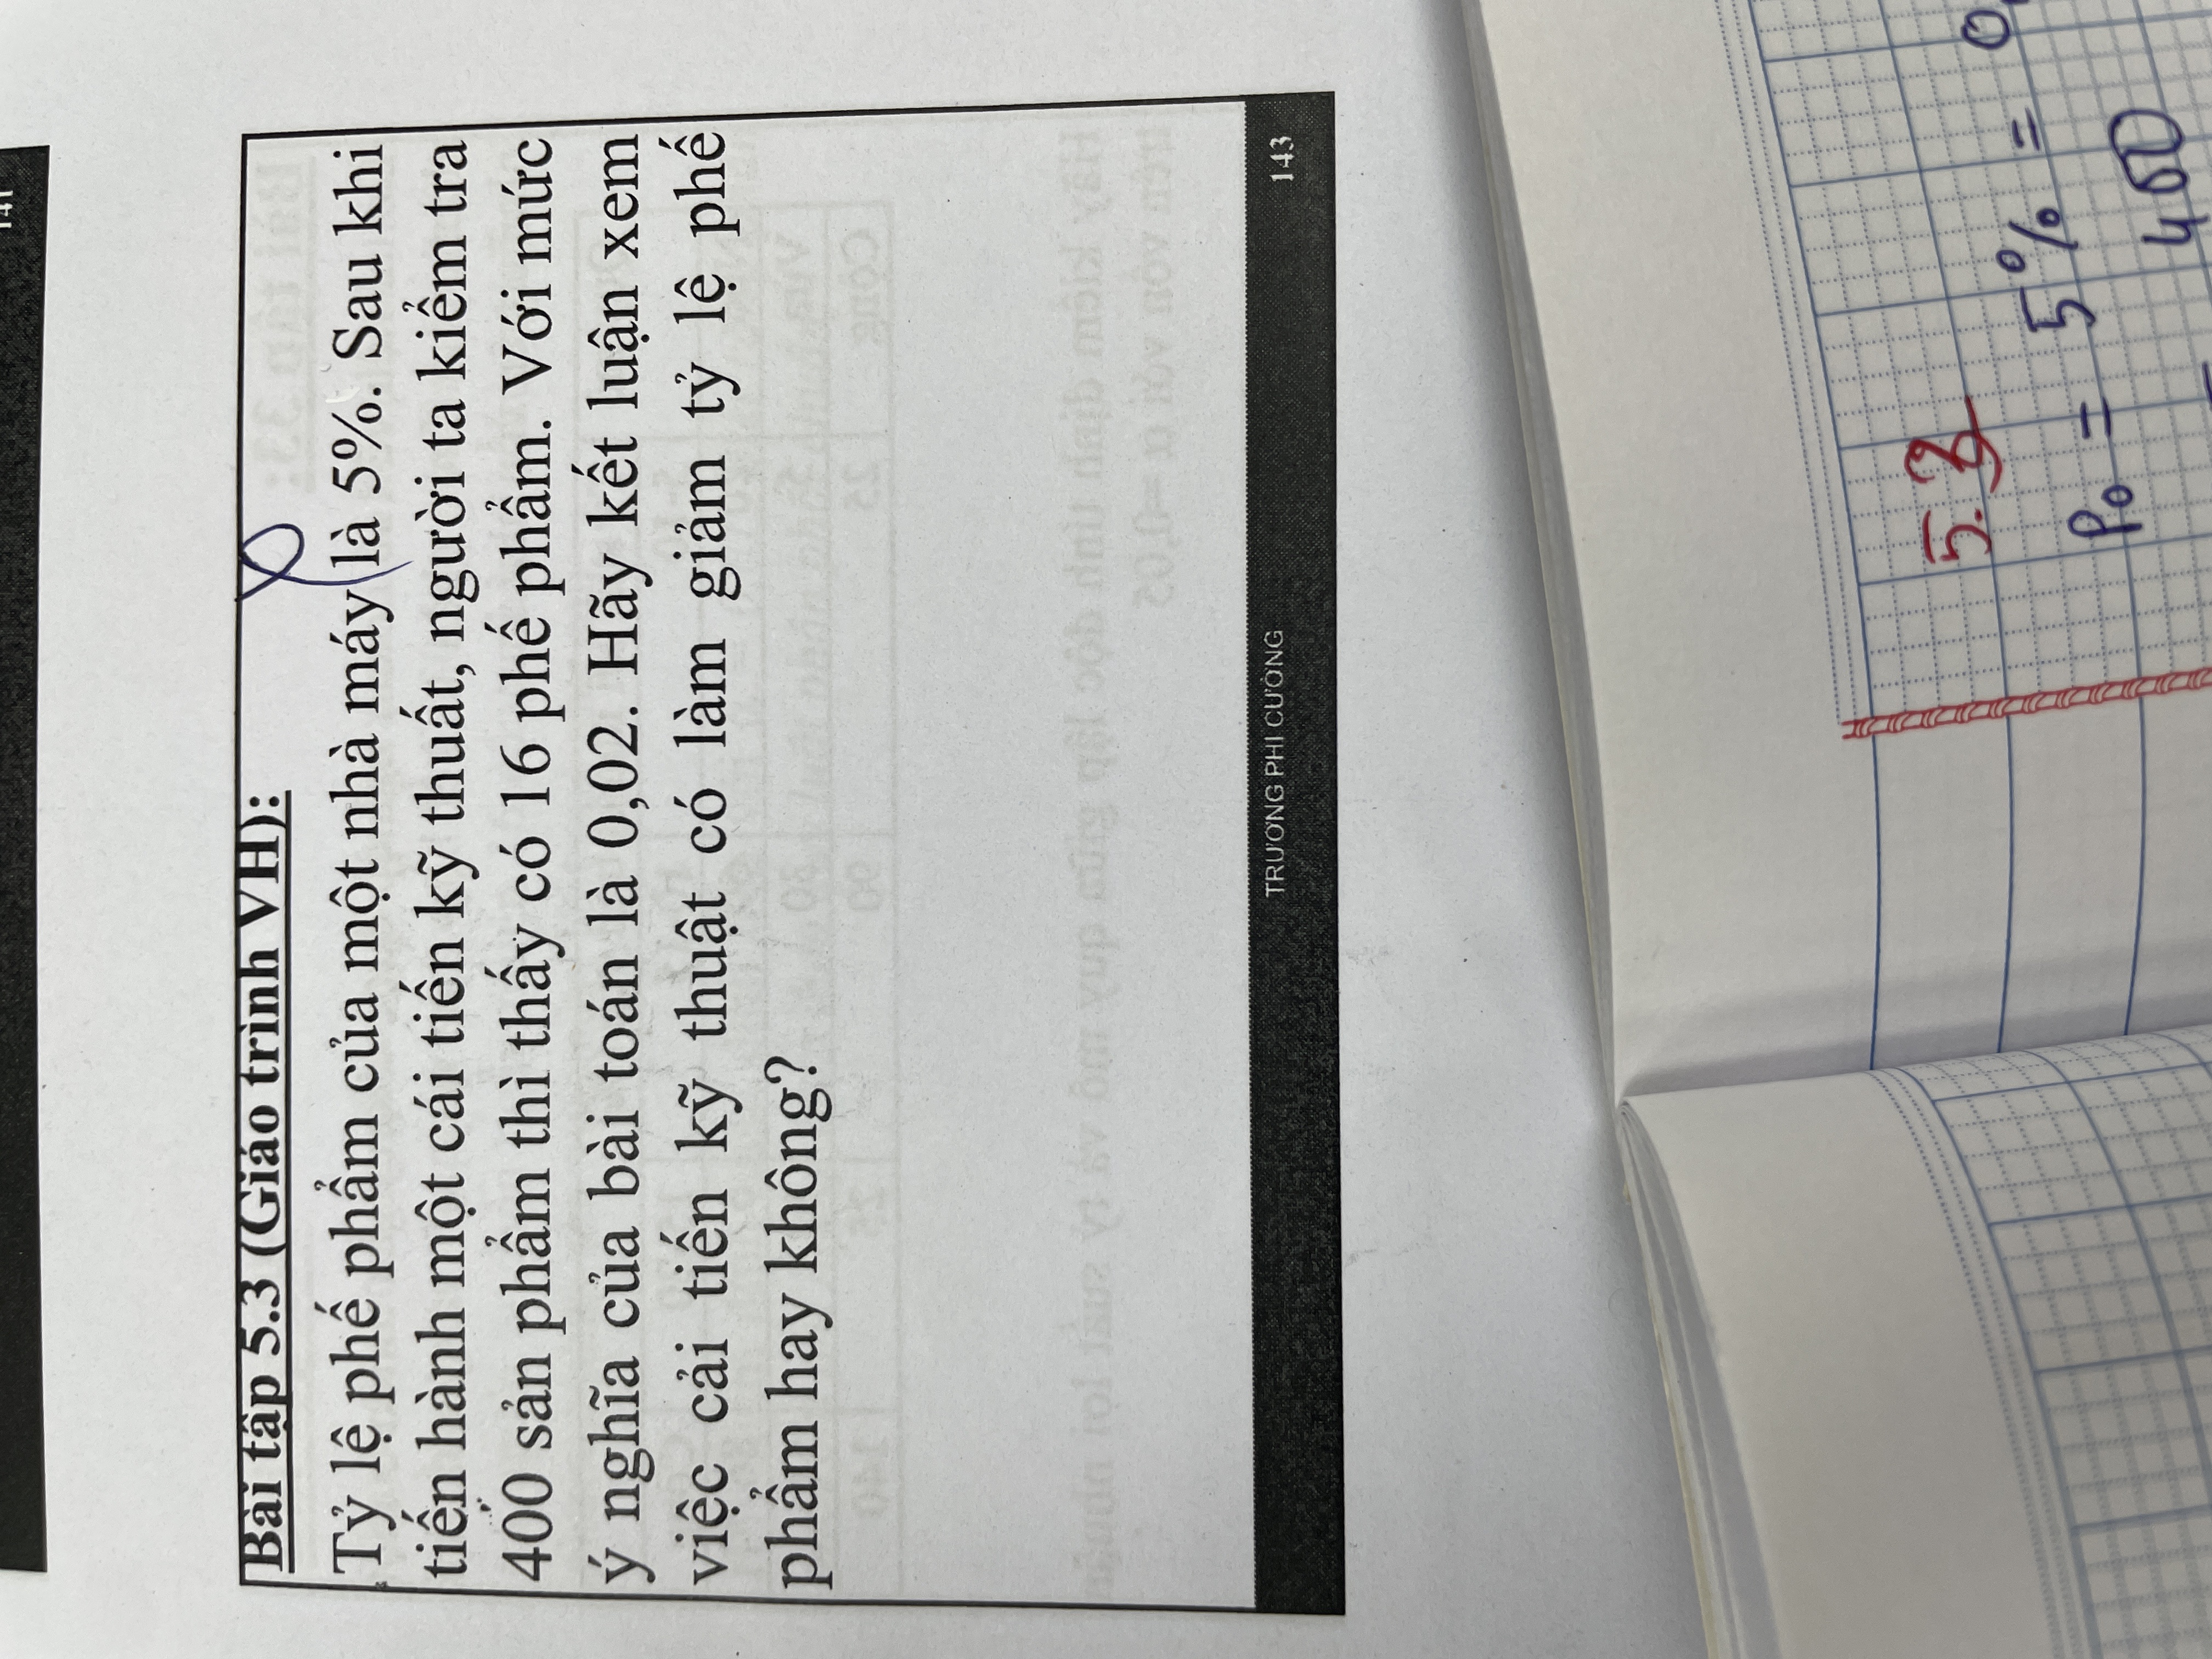 Bài tập 5.3 (Giáo trình VH):
Tỷ lệ phế phẩm của một nhà máy là 5%. Sau khi
tiến hành một cái tiến kỹ thuất, người ta kiểm tra
400 sản phẩm thì thấy có 16 phế phẩm. Với mức
ý nghĩa của bài toán là 0,02. Hãy kết luận xem
việc cải tiến kỹ thuật có làm giảm tỷ lệ phế
phẩm hay không?
TRƯƠNG PHI CƯỜNG
143
P₀ = 5% =